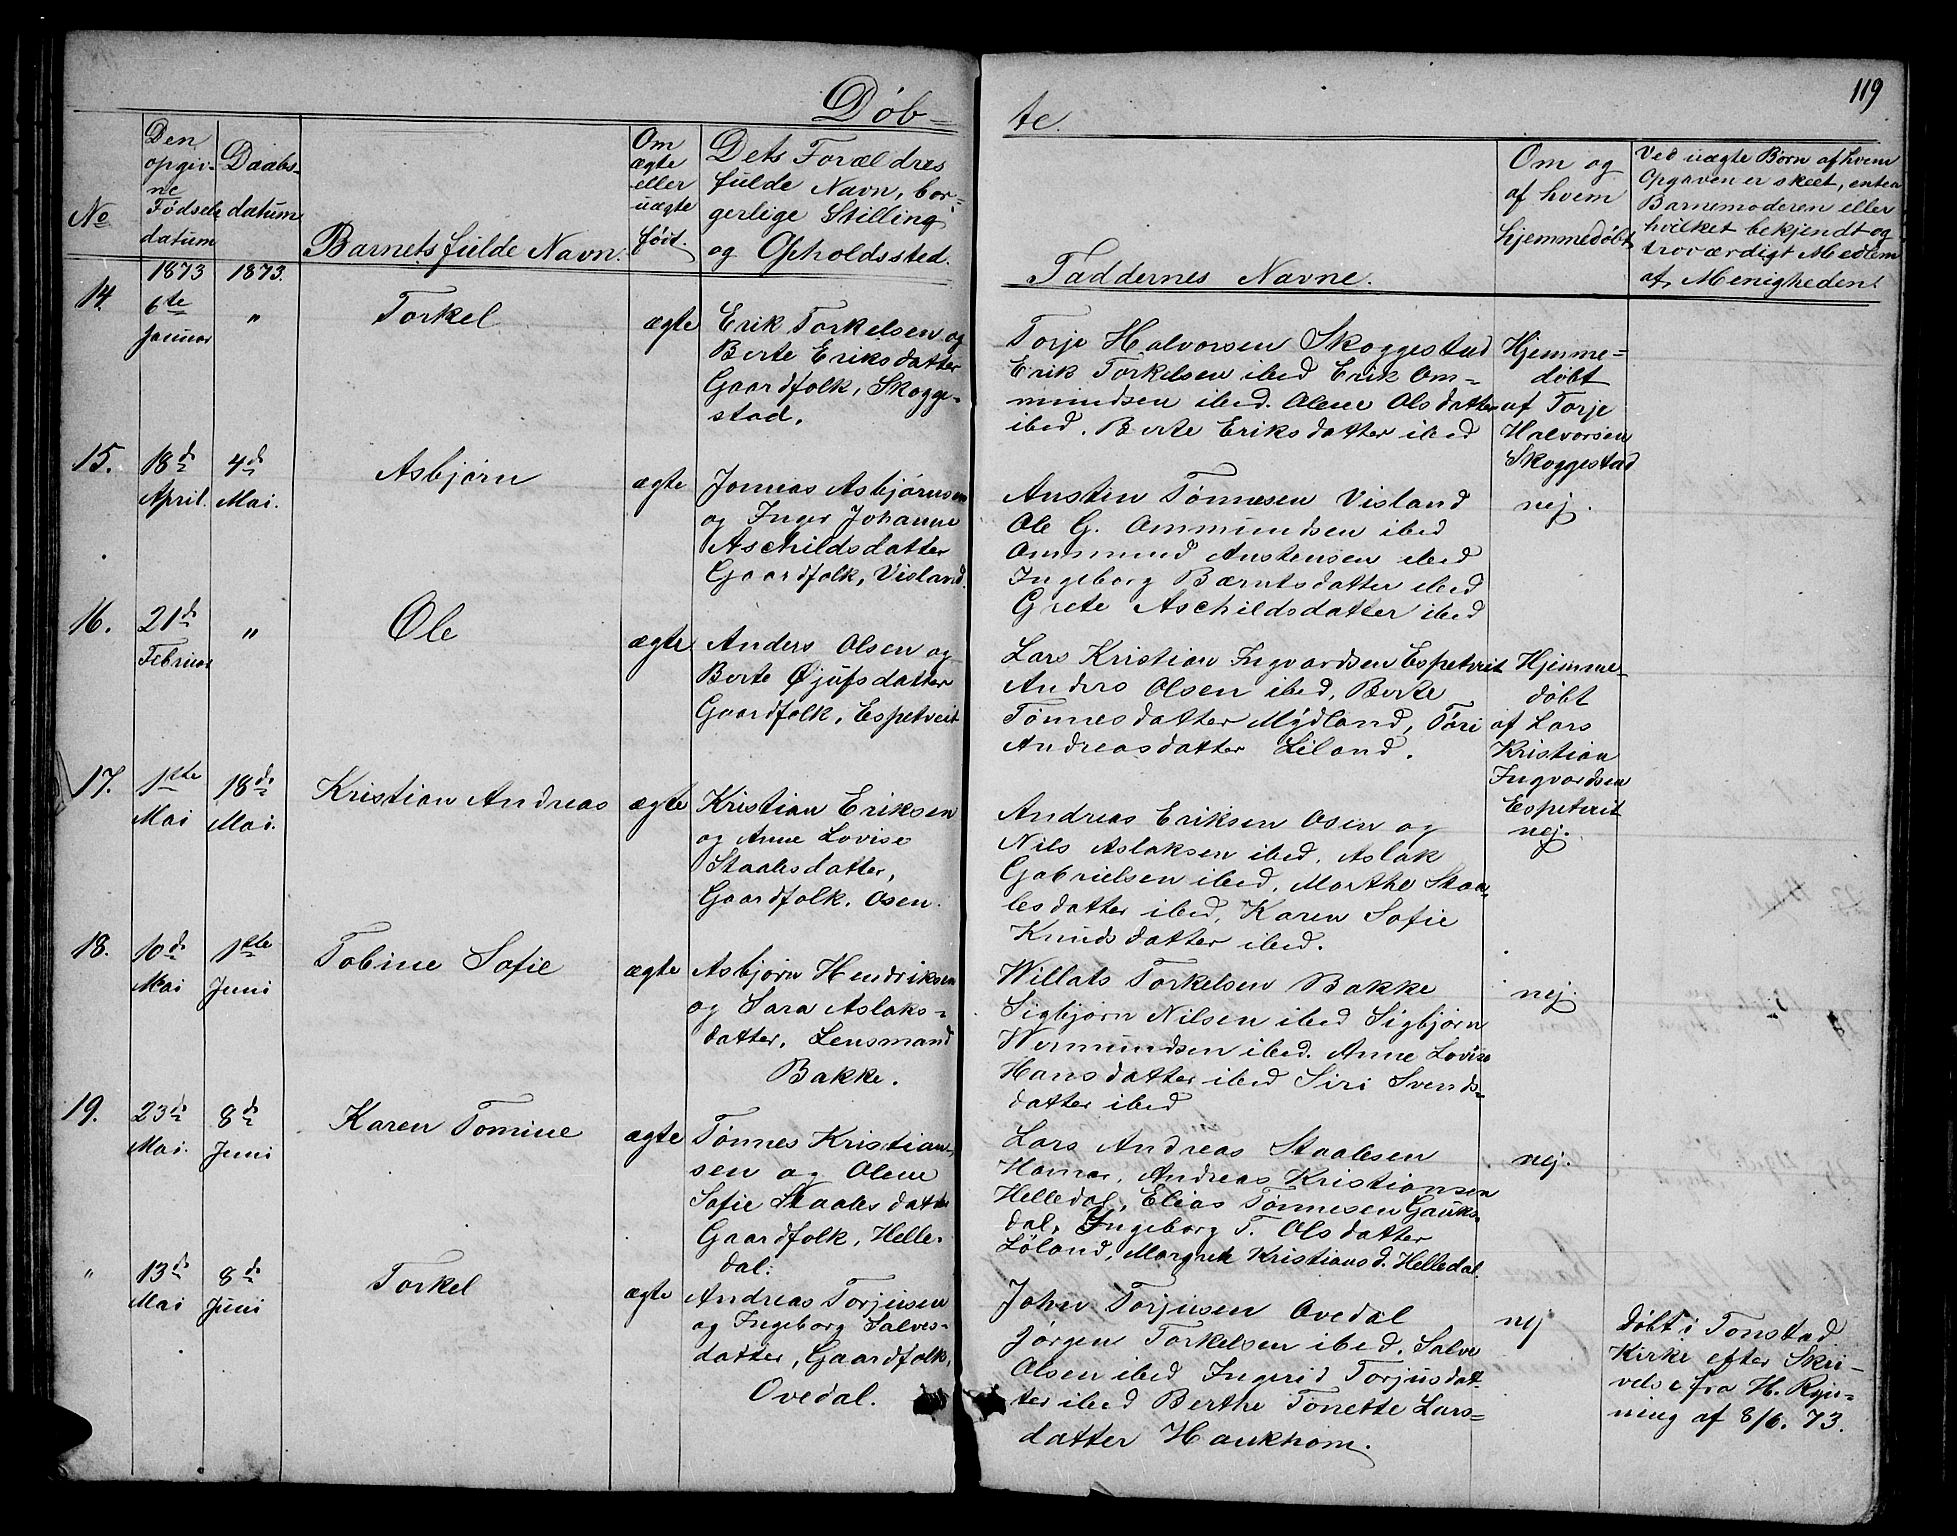 Døb=
te.
119
No
Den
opgiv-
ne
Fødsels
datum
Daabs-
datum
Barnets fulde Navn.
Om
ægte
eller
uægte
født.
Dets Forældres
fulde Navn, bor-
gerlige Stilling
og Opholdssted.
Faddernes Navne.
Om og
af hvem
hjemmedøbt
Ved uægte Børn af hvem
Opgaven er skeet, enten
Barnemoderen eller
hvilket bekjendt og
troværdigt Medlem
af Menigheden.
1873
1873.
14.
6te
Januar
"
Torkel
ægte
Erik Torkelsen og
Berte Eriksdatter
Gaardfolk, Skogge-
stad.
Torje Halvorsen Skoggestad
Erik Torkelsen ibed Erik Om-
mundsen ibed. Olene Olsdatter
ibed. Berte Eriksdatter ibed
Hjemme=
døbt
af Torje
Halvorsen
Skoggestad
15.
18d
April.
4d
Mai.
Asbjørn
ægte
Jonas Asbjørnsen
og Inger Johanne
Aschildsdatter
Gaardfolk, Visland.
Austen Tønnesen Visland
Ole G. Ommundsen ibed
Ommund Austensen ibed
Ingeborg Bærntsdatter ibed
Grete Aschildsdatter ibed
nej.
16.
21d
Februar
"
Ole
ægte
Anders Olsen og
Berte Øjufsdatter
Gaardfolk, Espetveit
Lars Kristian Ingvardsen Espetveit
Anders Olsen ibed, Berte
Tønnesdatter Mydland, Tori
Andreasdatter Liland.
Hjemme-
døbt
af Lars
Kristian
Ingvardsen
Espetveit
17.
1ste
Mai
18d
Mai.
Kristian Andreas
ægte
Kristian Eriksen
og Anne Lovise
Staalesdatter,
Gaardfolk. Osen.
Andreas Eriksen Osen og
Nils Aslaksen ibed. Aslak
Gabrielsen ibed, Marthe Staa-
lesdatter ibed, Karen Sofie
Knudsdatter ibed.
nej.
18.
10d
Mai
1ste
Juni
Tobine Sofie
ægte
Asbjørn Hendriksen
og Sara Aslaks=
datter, Lensmand
Bakke.
Willats Torkelsen Bakke
Sigbjørn Nilsen ibed Sigbjørn
Wermundsen ibed. Anne Lovise
Hansdatter ibed Siri Svends-
datter ibed
nej
19.
23d
Mai.
8d
Juni
Karen Tomine
ægte
Tønnes Kristian-
sen og Olene
Sofie Staalesdatter
Gaardfolk, Helle-
dal.
Lars Andreas Staalesen
Hamar, Andreas Kristiansen
Helledal, Elias Tønnesen Gauks-
dal, Ingeborg T. Olsdatter
Løland, Margrete Kristiansd. Helledal.
nej.
"
13d
Mai
8d
Juni
Torkel
ægte
Andreas Torjusen
og Ingeborg Salves-
datter, Gaardfolk,
Ovedal.
John Torjusen Ovedal
Jørgen Torkelsen ibed, Salve
Olsen ibed Ingerid Torjusdat-
ter ibed Berthe Tonette Lars=
datter Haukhom.
nej
døbt i Tonstad
Kirke efter Skri-
velse fra H. Ryn-
ning af 8/6. 73.